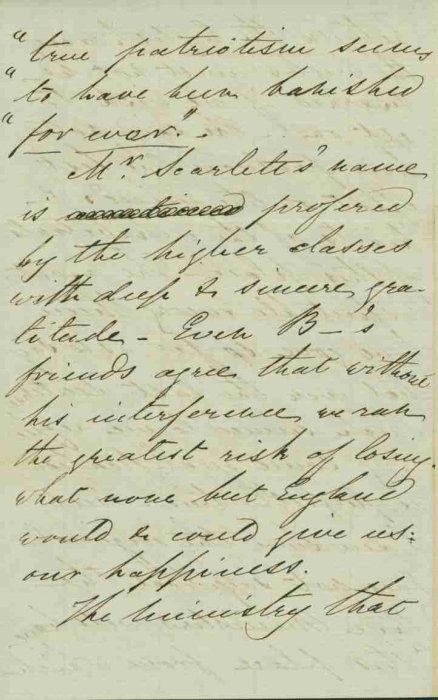 "true patriotism seems
"to have been banished
"for ever". -
Mr. Scarlett's name
is profered
by the higher classes
with deep & sincere gra-
titude - Even B—'s
friends agree that without
his interference we ran
the greatest risk of losing
what none but England
would & could give us:
our happiness.
The ministry that